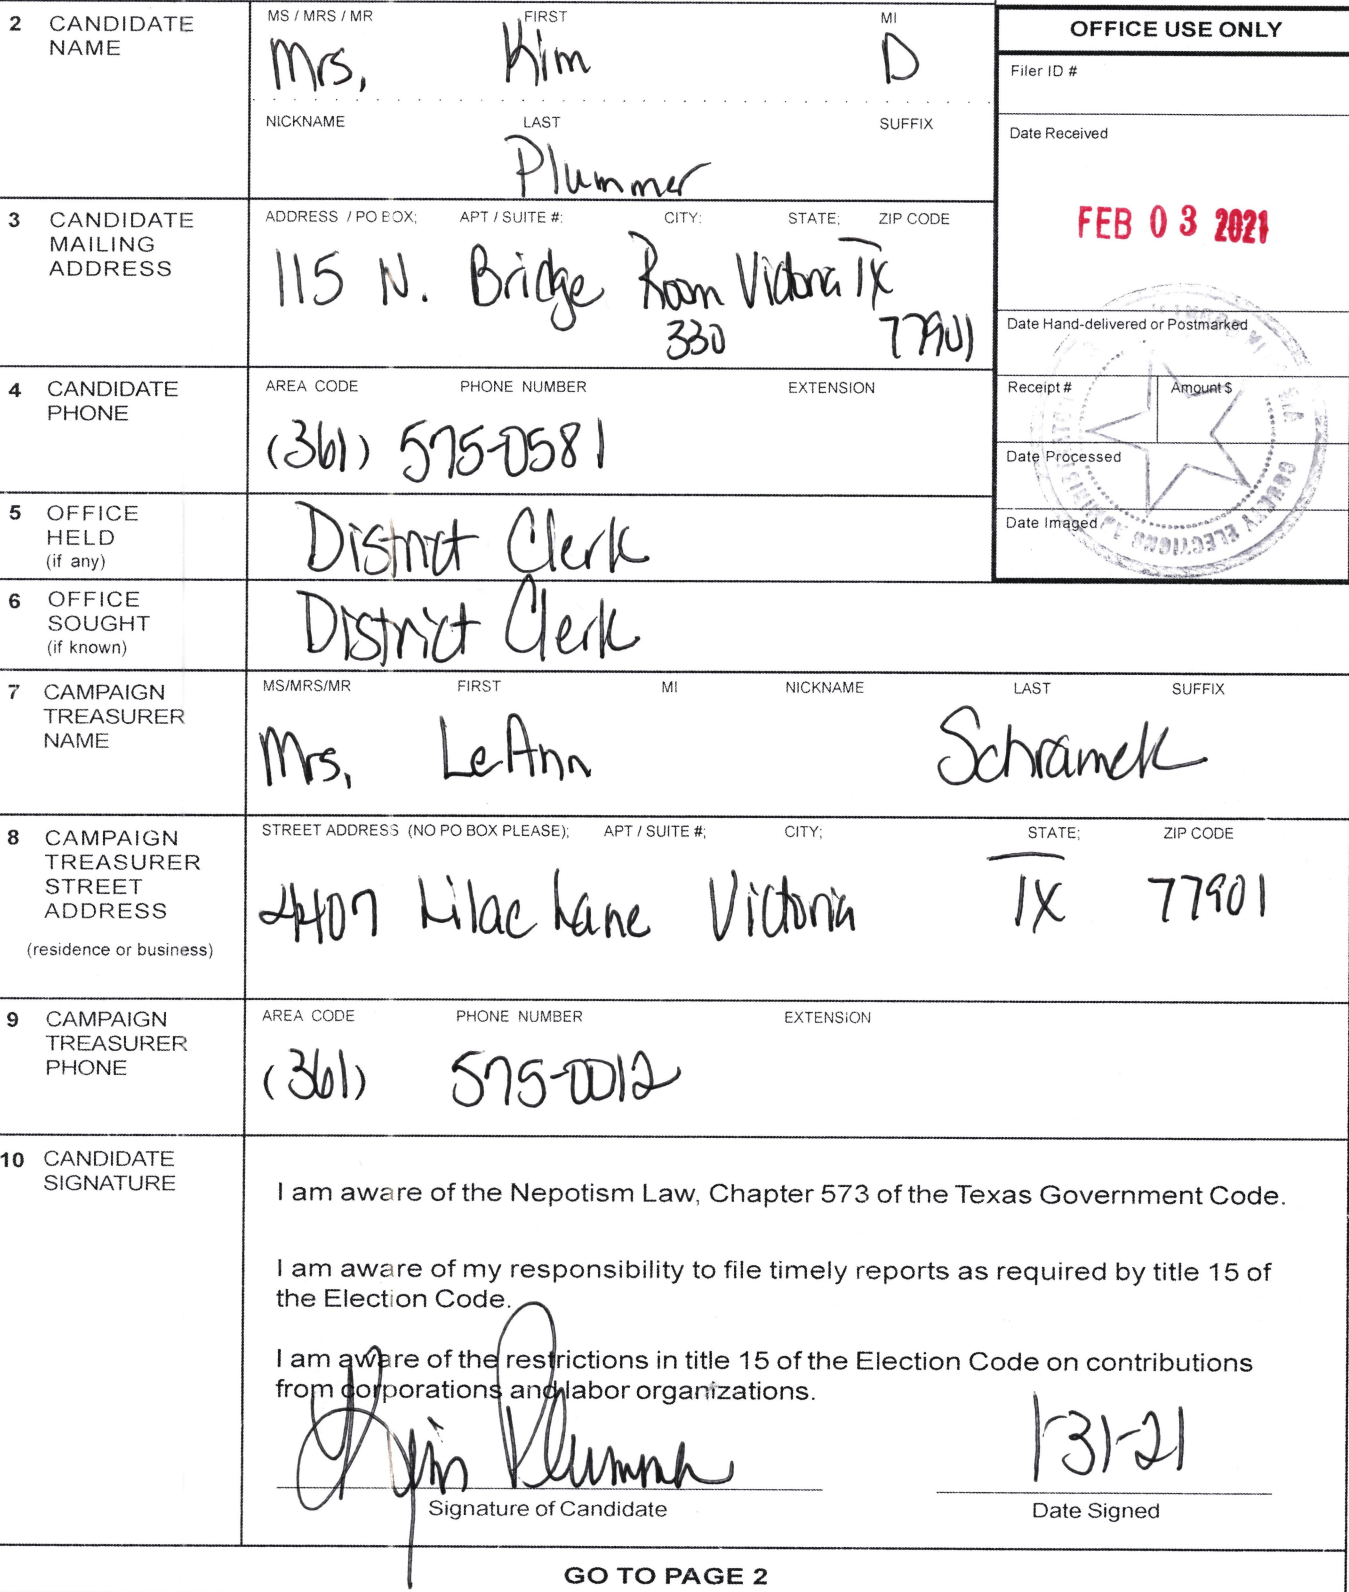 2 CANDIDATE NAME
MS / MRS / MR FIRST MI
Mrs. Kim D
NICKNAME LAST SUFFIX
Plummer
OFFICE USE ONLY
Filer ID #
Date Received
FEB 03 2021
Date Hand-delivered or Postmarked
Receipt # Amount $
Date Processed
Date Imaged
COUNTY ELECTIONS
3 CANDIDATE MAILING ADDRESS
ADDRESS / PO BOX; APT / SUITE #; CITY; STATE; ZIP CODE
115 N. Bridge Room Victoria TX
330 77901
4 CANDIDATE PHONE
AREA CODE PHONE NUMBER EXTENSION
(361) 575-0581
5 OFFICE HELD (if any)
District Clerk
6 OFFICE SOUGHT (if known)
District Clerk
7 CAMPAIGN TREASURER NAME
MS/MRS/MR FIRST MI NICKNAME LAST SUFFIX
Mrs. LeAnn Schramek
8 CAMPAIGN TREASURER STREET ADDRESS
(residence or business)
STREET ADDRESS (NO PO BOX PLEASE); APT / SUITE #; CITY; STATE; ZIP CODE
4407 Lilac Lane Victoria TX 77901
9 CAMPAIGN TREASURER PHONE
AREA CODE PHONE NUMBER EXTENSION
(361) 575-0012
10 CANDIDATE SIGNATURE
I am aware of the Nepotism Law, Chapter 573 of the Texas Government Code.
I am aware of my responsibility to file timely reports as required by title 15 of
the Election Code.
I am aware of the restrictions in title 15 of the Election Code on contributions
from corporations and labor organizations.
Kim Plummer 1-31-21
Signature of Candidate Date Signed
GO TO PAGE 2